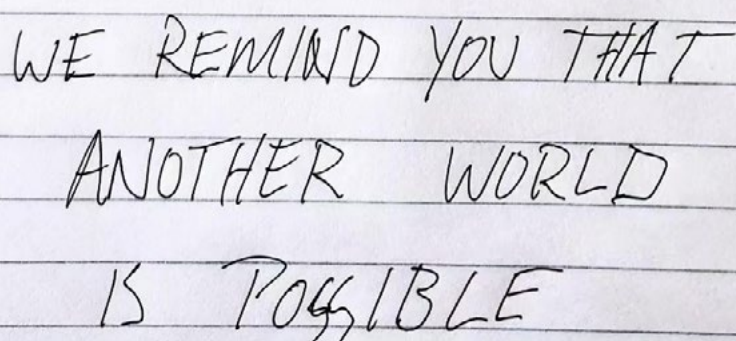 WE REMIND YOU THAT
ANOTHER WORLD
IS POSSIBLE